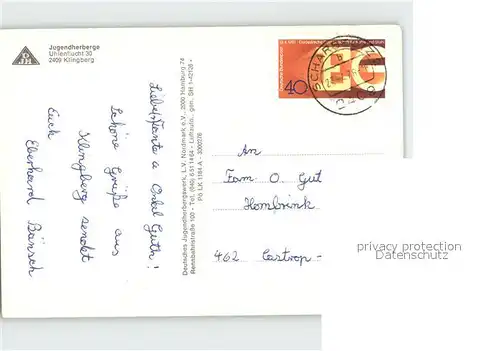 DJH
Jugendherberge
Uhlenflucht 30
2409 Klingberg
Liebe(r) Tante u Onkel Guth!
Schöne Grüße aus
Klingberg sendet
Euch
Eberhard Bänsch
Deutsches Jugendherbergswerk, LV. Nordmark e.V., 2000 Hamburg 74
Rennbahnstraße 100 - Tel. (040)
40
SCHAR
An
Fam. O. Gut
Hombrink
462 Castrop-
privacy protection
Datenschutz